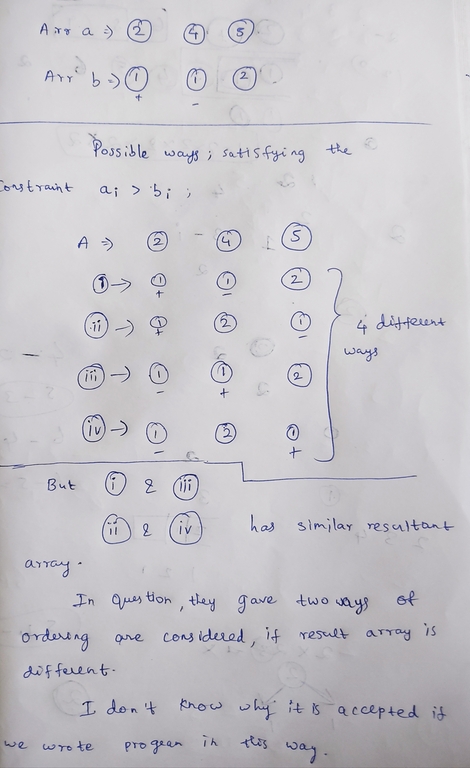 Arr a => 2 4 5
Arr b => 1 1 2
+ -
Possible ways, satisfying the
constraint ai > bi ;
A => 2 4 5
i -> 1 1 2
+ -
ii -> 1 2 1
+ -
iii -> 1 1 2
- +
iv -> 1 2 1
- +
4 different
ways
But i & iii
ii & iv has similar resultant
array.
In Question, they gave two ways of
ordering are considered, if result array is
different.
I don't know why it is accepted if
we wrote progran in this way.